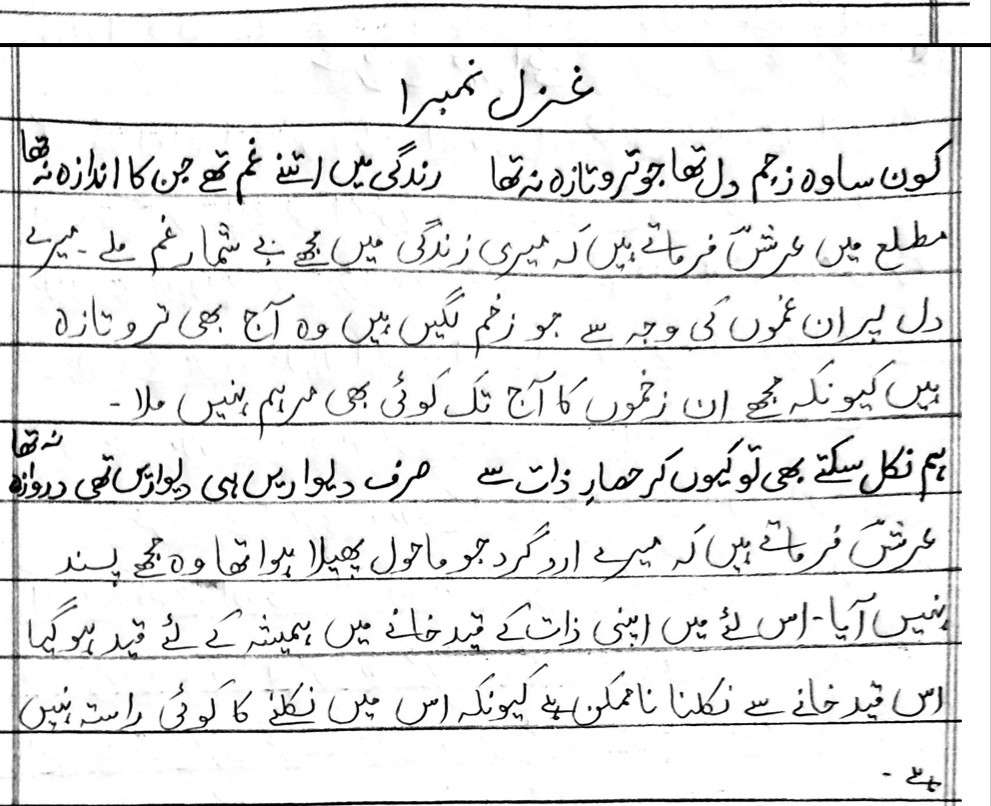 غزل نمبر ۱
کون سا وہ زخم دل تھا جو تروتازہ نہ تھا زندگی میں اتنے غم تھے جن کا اندازہ نہ تھا
مطلع میں عرشؔ فرماتے ہیں کہ میری زندگی میں مجھے بے شمار غم ملے ۔ میرے
دل پر ان غموں کی وجہ سے جو زخم لگیں ہیں وہ آج بھی تروتازہ
ہیں کیونکہ مجھے ان زخموں کا آج تک کوئی بھی مرہم نہیں ملا ۔
ہم نکل سکتے بھی تو کیوں کر حصارِ ذات سے صرف دیواریں ہی دیواریں تھی دروازہ نہ تھا
عرشؔ فرماتے ہیں کہ میرے ارد گرد جو ماحول پھیلا ہوا تھا وہ مجھے پسند
نہیں آیا ۔ اس لئے میں اپنی ذات کے قید خانے میں ہمیشہ کے لئے قید ہو گیا
اس قید خانے سے نکلنا ناممکن ہے کیونکہ اس میں نکلنے کا کوئی راستہ نہیں
ہے ۔